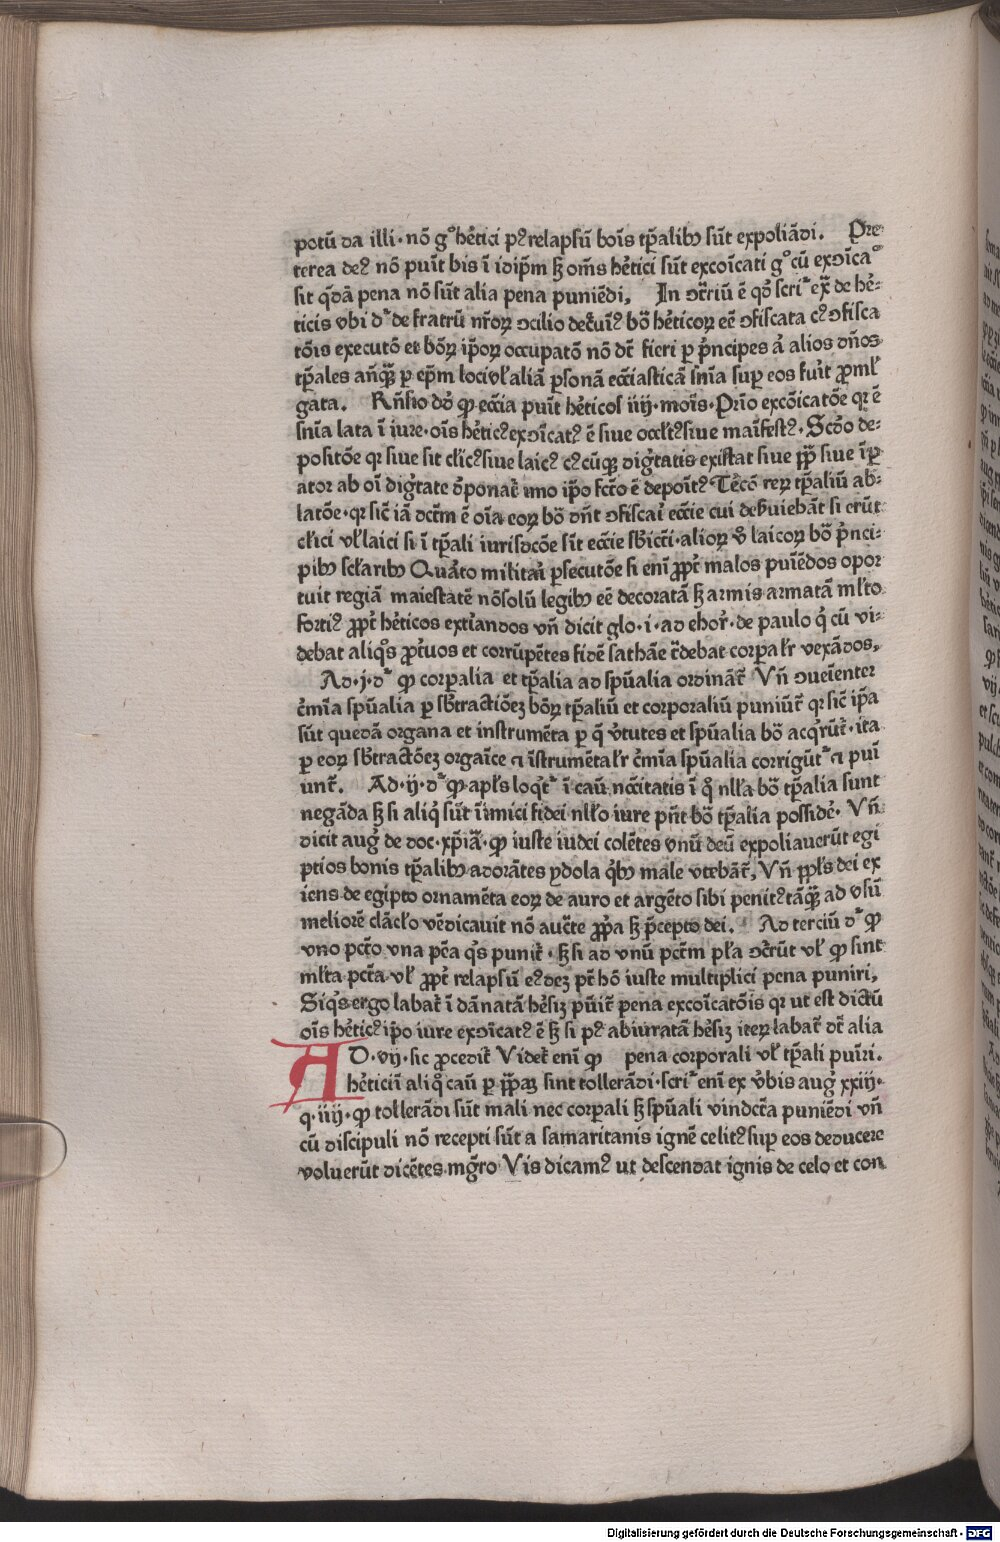 potū da illi · nō gͦ hẽtici pꝰ relapsū boĩs tp̃alibꝰ sũt expoliãdi . Pre
terea deꝰ nō puĩt bis ĩ idip̃m ꝫ om̃s hẽtici sũt excoĩcati gͦ cū exↄĩcaͦ
sit q̃dã pena nō sũt alia pena puniẽdi, In ↄt̃riū ẽ qđ scriͬ ex̃ de hẽ⸗
ticis vbi đͬ de fratrū nr̃oꝝ ↄcilio decͬuĩꝰ bõ hẽticoꝝ eẽ ↄfiscata cꝰ ↄfisca
tōis executō et bōꝝ ip̃oꝝ occupatō nō dt̃ fieri ꝑ p̃ncipes aͥ alios dños
tp̃ales añqꝫ̃ ꝑ ep̃m loci vł aliã ꝑsonã ecc̃iasticã snĩa suꝑ eos fuĩt ꝓmł
gata . Rñsio đo ꝙ ecc̃ia puĩt hẽticos iiij · moĩs · Prĩo excōicatōe qꝛ ẽ
snĩa lata ĩ iure · oĩs hẽticꝰ exↄĩcatꝰ ẽ siue occłtꝰ siue maĩfestꝰ · Scđo de⸗
positōe qꝛ siue sit cłicꝰ siue laicꝰ cꝰcūqꝫ dig̃tatis existat siue pp̃ siue ĩꝑ
ator ab oĩ dig̃tate đponat̃ imo ip̃o fcт̃o ẽ depoĩtꝰ Tẽcō reꝝ tp̃aliū ab⸗
latōe · qꝛ sic̃ iã dct̃m ẽ oĩa eoꝝ bõ dñt ↄfiscaĩ ecc̃ie cui deẜuiebãt si erũt
cłici vł laici si ĩ tp̃ali iurisdcōe sĩt ecc̃ie sb̃icc̃i · alioꝝ v̾o laicoꝝ bõ p̃nci⸗
pibꝰ scłaribꝰ Quãto militaͥ ꝑsecutōe si enĩ ꝓpt̃ malos puĩẽdos opor
tuit regiã maiestatē nōsolū legibꝰ eẽ decoratã ꝫ armis armatã młto
fortiꝰ ꝓpt̃ hẽticos extͥandos vñ dicit glo · i · ad ehor̃ · de paulo qͥ cū vi⸗
debat aliqͦs ꝓt̾uos et corrūpẽtes fidẽ sathãe t̃debat corpałr vexãdos,
Ad · j · đͬ ꝙ corꝑalia et tp̃alia ad spũalia ordinãt̃ Vñ ↄueĩenter
c̾mĩa spũalia ꝑ sb̃tractiōeꝫ bōꝝ tp̃aliū et corporaliū puniũt̃ qꝛ sic̃ ip̃a
sũt quedã organa et instrumẽta ꝑ q̃ v̾tutes et spũalia bõ acqͥrũt̃ · ita
ꝑ eoꝝ sb̃tractōeꝫ orgaĩce ⁊ ĩstrumẽtałr c̾mĩa spũalia corrigũtͬ ⁊ puĩ
unt̃ . Ad · ij · đͬ ꝙ apłs loqͥtͬ ĩ caū nc̃citatis ĩ q̃ nłła bõ tp̃alia sunt
negãda ꝫ si aliqͥ sũt ĩimici fidei nłło iure pñt bõ tp̃alia possidẽ · Vñ
dicit aug̃ de doc · xp̃iã · ꝙ iuste iudei colẽtes vnū deū expoliauerũt egi
ptios bonis tp̃alibꝰ adorãtes ydola qͥbꝰ male vtebãt̃, Vñ pp̃łs dei ex
iens de egipto ornamẽta eoꝝ de auro et argẽto sibi penitꝰ tãqꝫ̃ ad vsū
meliorē clãcło vẽdicauit nō auct̃e ꝓp̃a ꝫ p̃cepto dei . Ad terciū đͬ ꝙ
vno pct̃o vna pẽa qͥs punit̃ · ꝫ si ad vnū pct̃m pła ↄc̾rũt vł ꝙ sint
młta pct̃a vł ꝓpt̃ relapsū eꝰdeꝫ pt̃ hõ iuste multiplici pena puniri,
Siqͥs ergo labat̃ ĩ dãnatã hẽsiꝫ pũit̃ pena excoĩcatōis qꝛ ut est dictū
oĩs hẽticꝰ ip̃o iure exↄĩcatꝰ ẽ ꝫ si pꝰ abiuratã hẽsiꝫ iteꝝ labat̃ dt̃ alia
AD · vij · sic ꝓcedit̃ Videt̃ enĩ ꝙ pena corporali vł tp̃ali puĩri .
hẽticiĩ aliq̃ caū ꝑ pp̃aꝫ sint tollerãdi · scriͬ enĩ ex v̾bis aug̃ xxiij ·
q · iiij · ꝙ tollerãdi sũt mali nec corꝑali ꝫ spũali vindcc̃ta puniẽdi vñ
cū discipuli nō recepti sũt a samaritanis ignē celitꝰ suꝑ eos deducere
voluerũt dicẽtes mg̃ro Vis dicamꝰ ut descendat ignis de celo et con
Digitalisierung gefördert durch die Deutsche Forschungsgemeinschaft - DFG